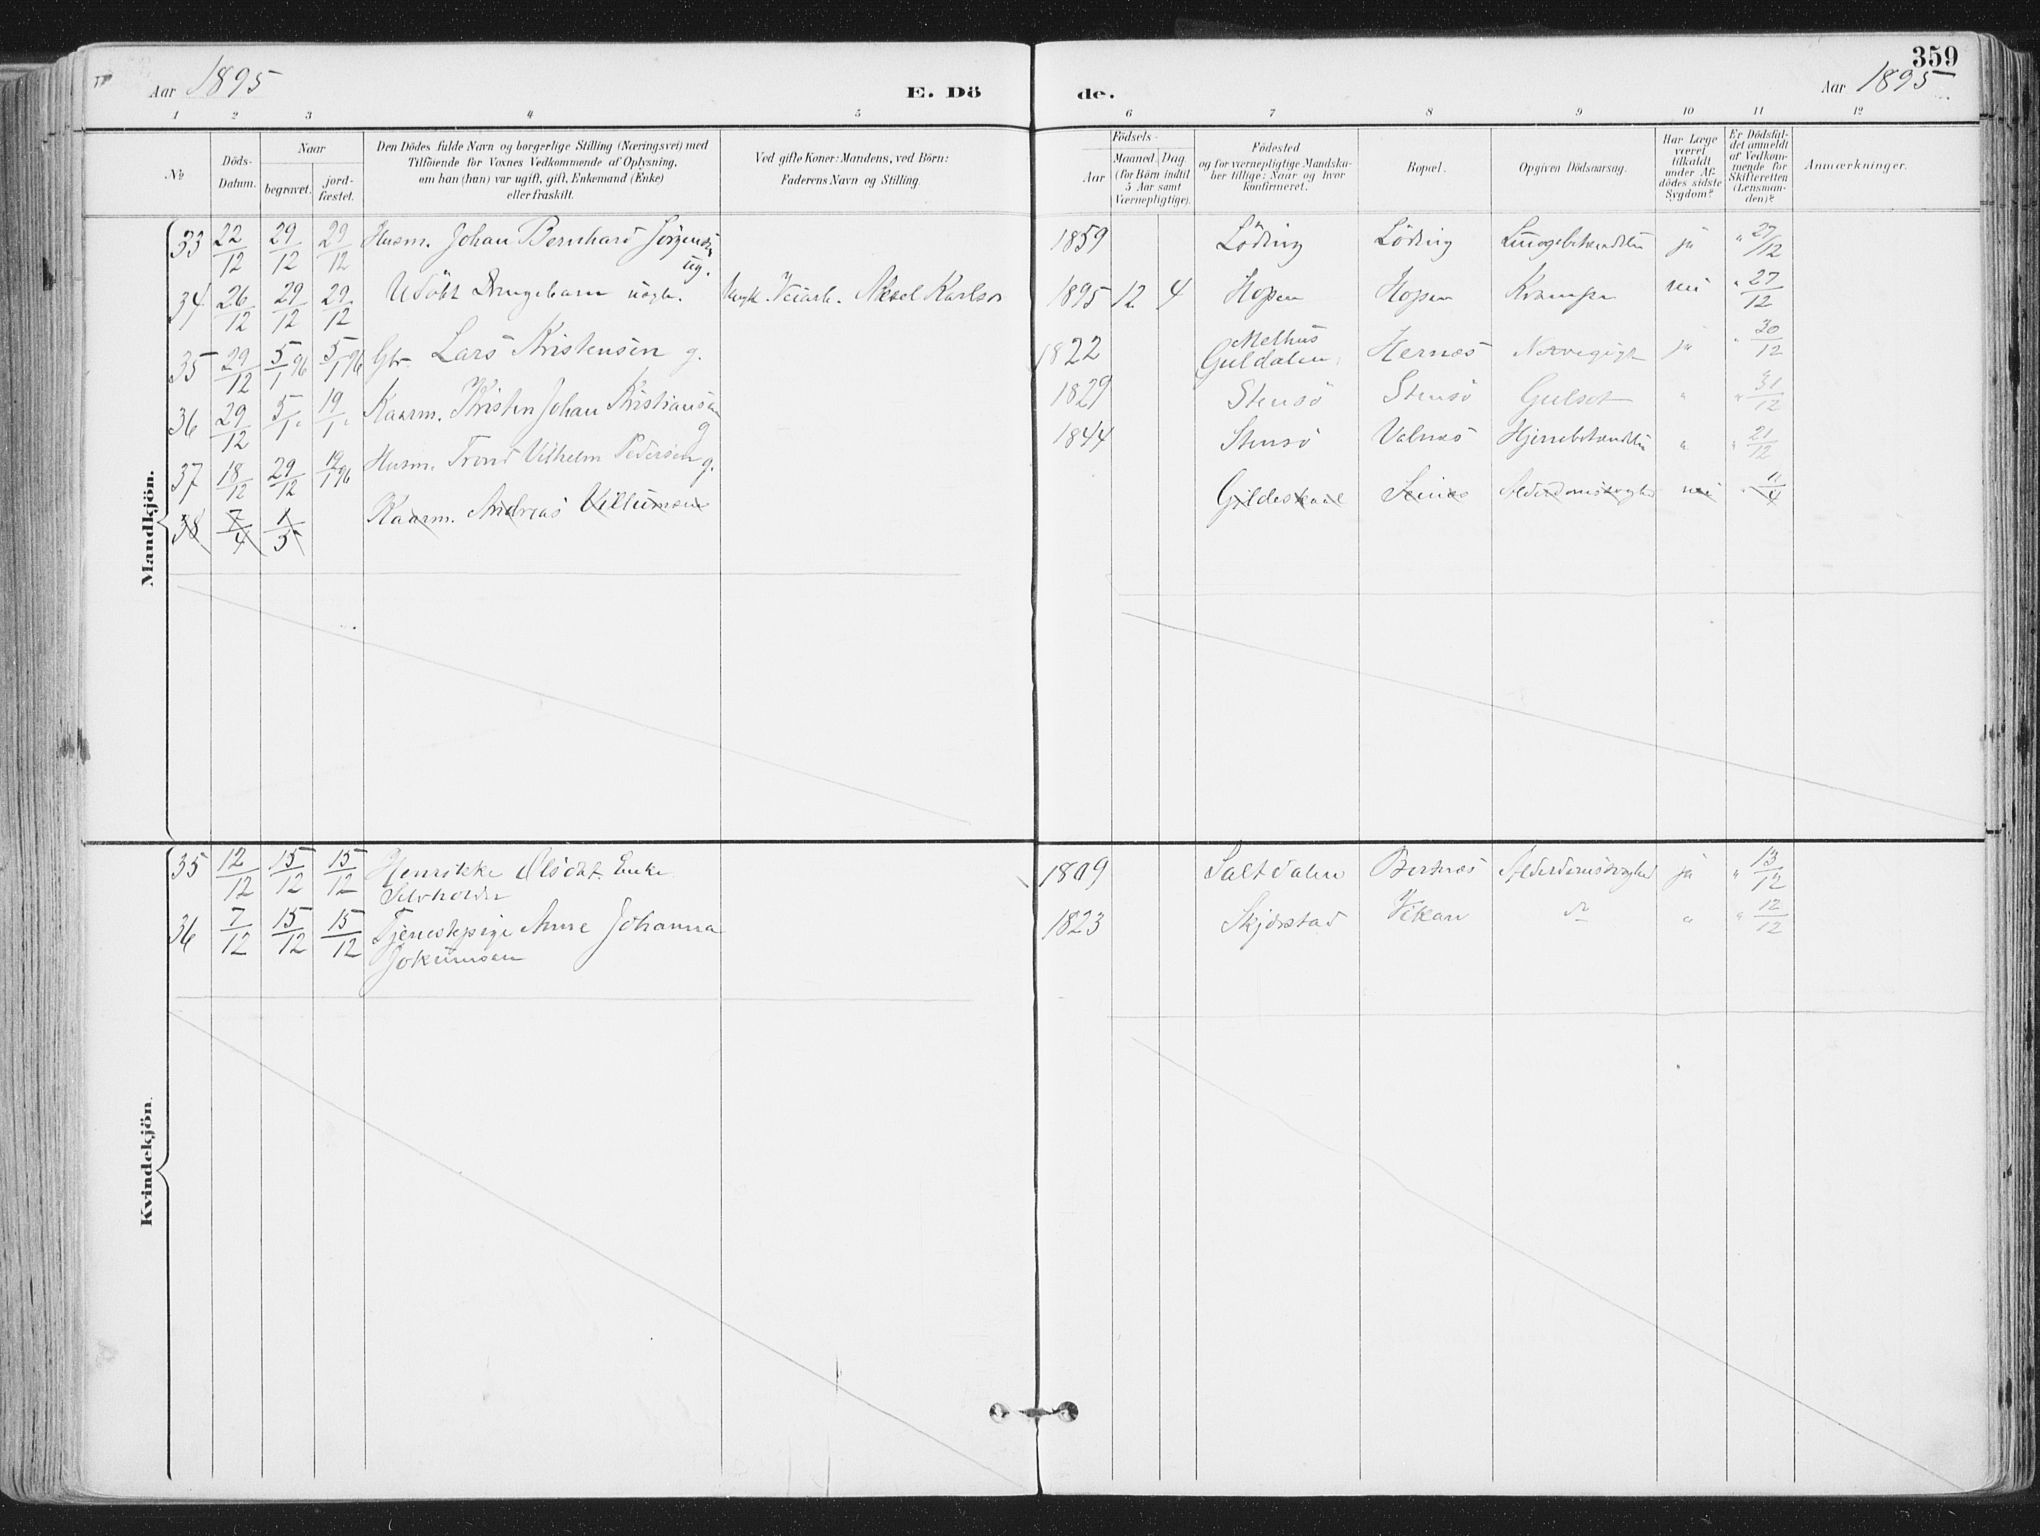 359
Aar 1895
E. Dö de.
Aar 1895
1 2 3 4 5 6 7 8 9 10 11 12
№
Döds-Datum.
Naar
begravet.
jord-fæstet.
Den Dödes fulde Navn og borgerlige Stilling (Næringsvei) med
Tilföiende for Voxnes Vedkommende af Oplysning,
om han (hun) var ugift, gift, Enkemand (Enke)
eller fraskilt.
Ved gifte Koner: Mandens, ved Börn:
Faderens Navn og Stilling.
Födsels-
Aar
Maaned. Dag.
(for Börn indtil
5 Aar samt
Værnepligtige).
Födested
og for værnepligtige Mandska-
ber tillige: Naar og hvor
konfirmeret.
Bopæl.
Opgiven Dödsaarsag.
Har Læge
været
tilkaldt
under Af-
dödes sidste
Sygdom?
Er Dödsfal-
det anmeldt
af Vedkom-
mende for
Skifteretten
(Lensman-
den)?
Anmærkninger.
Mandkjön.
33 22/12 29/12 29/12 Husm. Johan Bernhard Jörgensen ug. 1859 Löding Löding Lungebetændelse ja " 27/12
34 26/12 29/12 29/12 Udöbt Drengebarn uægte. Ungk. Veiarb. Aksel Karlsen 1895 12 4 Hopen Hopen Krampe nei " 27/12
35 29/12 5/1 96 5/1 96 Gbr. Lars Kristensen g. 1822 Melhus Guldalen Hernes Nervegigt ja " 30/12
36 29/12 5/1 19/1 Kaarm. Kristen Johan Kristiansen g 1829 Stensö Stensö Gulsot " " 31/12
37 18/12 29/12 19/1 96 Husm. Trond Vilhelm Pedersen g. 1844 Stensö Valnes Hjernebetændelse " " 21/12
38 7/4 1/5 Kaarm. Andreas Villumsen Gildeskaal Seines Alderdomssvaghed nei " 11/4
Kvindekjön.
35 12/12 15/12 15/12 Henrikke Olsdt. Enke Selvholder 1809 Saltdalen Bertnes Alderdomssvaghed ja " 13/12
36 7/12 15/12 15/12 Tjenestepige Anne Johanna Jokumsen 1823 Skjerstad Vikan do " " 12/12